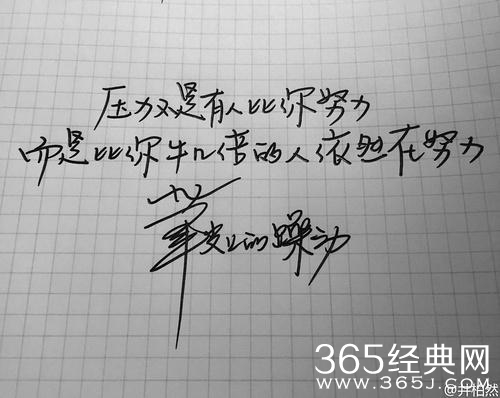 压力不是有人比你努力
而是比你牛几倍的人依然在努力
笔尖上的躁动
365经典网
www.365J.com
@井柏然